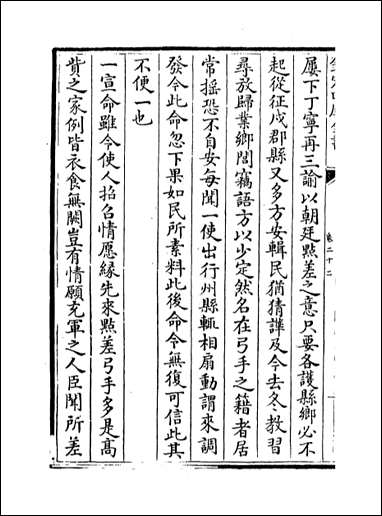 欽定四庫全書
卷二十二
屢下丁寧再三諭以朝廷㸃差之意只要各護縣鄉必不
起從征戍郡縣又多方安輯民猶猜譁及今去冬教習
尋放歸業鄉閭竊語方以少定然名在弓手之籍者居
常摇恐不自安每聞一使出行州縣輒相扇動謂來調
發今此命忽下果如民所素料此後命令無復可信此其
不便一也
一宣命雖令使人招召情愿緣先來㸃差弓手多是髙
貲之家例皆衣食無闕豈有情願充軍之人臣聞所差